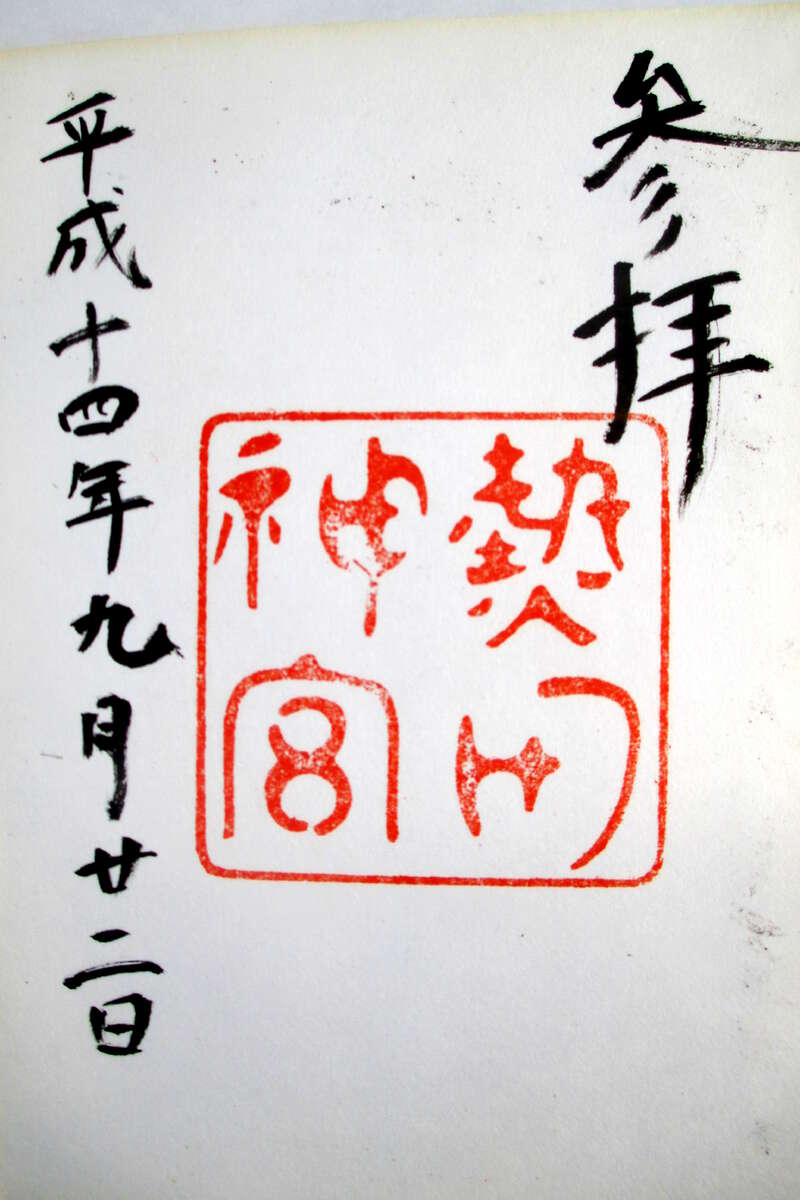 参拝
熱田
神宮
平成十四年九月廿二日